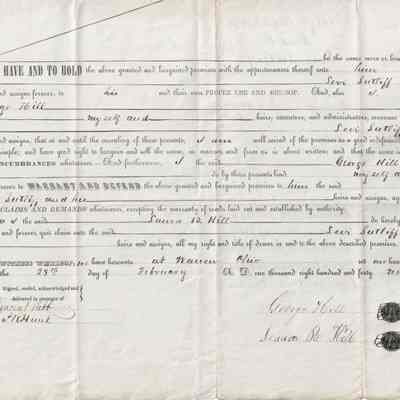 be the same more or less
HAVE AND TO HOLD the above granted and bargained premises with the appurtenances thereof unto him
the said Levi Sutliff
and assigns forever, to his and their own PROPER USE AND BEHOOF. And also, I
George Hill
my self and heirs, executors, and administrators, covenant
Levi Sutliff
and assigns, that at and until the ensealing of these presents, I am well seized of the premises as a good indefeasible
simple; and have good right to bargain and sell the same, in manner and form as is above written; and that the same is
INCUMBRANCES whatsoever. And furthermore, I the said George Hill
do by these presents bind my self and
forever to WARRANT AND DEFEND the above granted and bargained premises to him the said
Sutliff and his heirs and assigns,
CLAIMS AND DEMANDS whatsoever, excepting the warranty of roads laid out and established by authority.
I the said Laura B. Hill do hereby
and forever quit claim unto the said Levi Sutliff
heirs and assigns, all my right and title of dower in and to the above described premises.
WITNESS WHEREOF, we have hereunto at Warren Ohio
the 28th day of February A. D. one thousand eight hundred and forty
Signed, sealed, acknowledged and
delivered in presence of
Hunt
George Hill
Hill